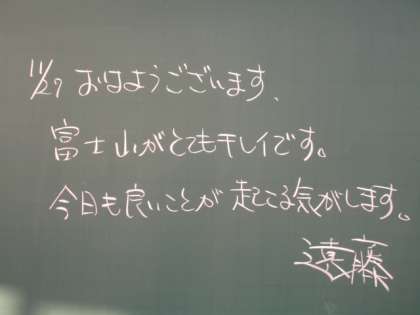 11/27 おはようございます、
富士山がとてもキレイです。
今日も良いことが起こる気がします。
遠藤